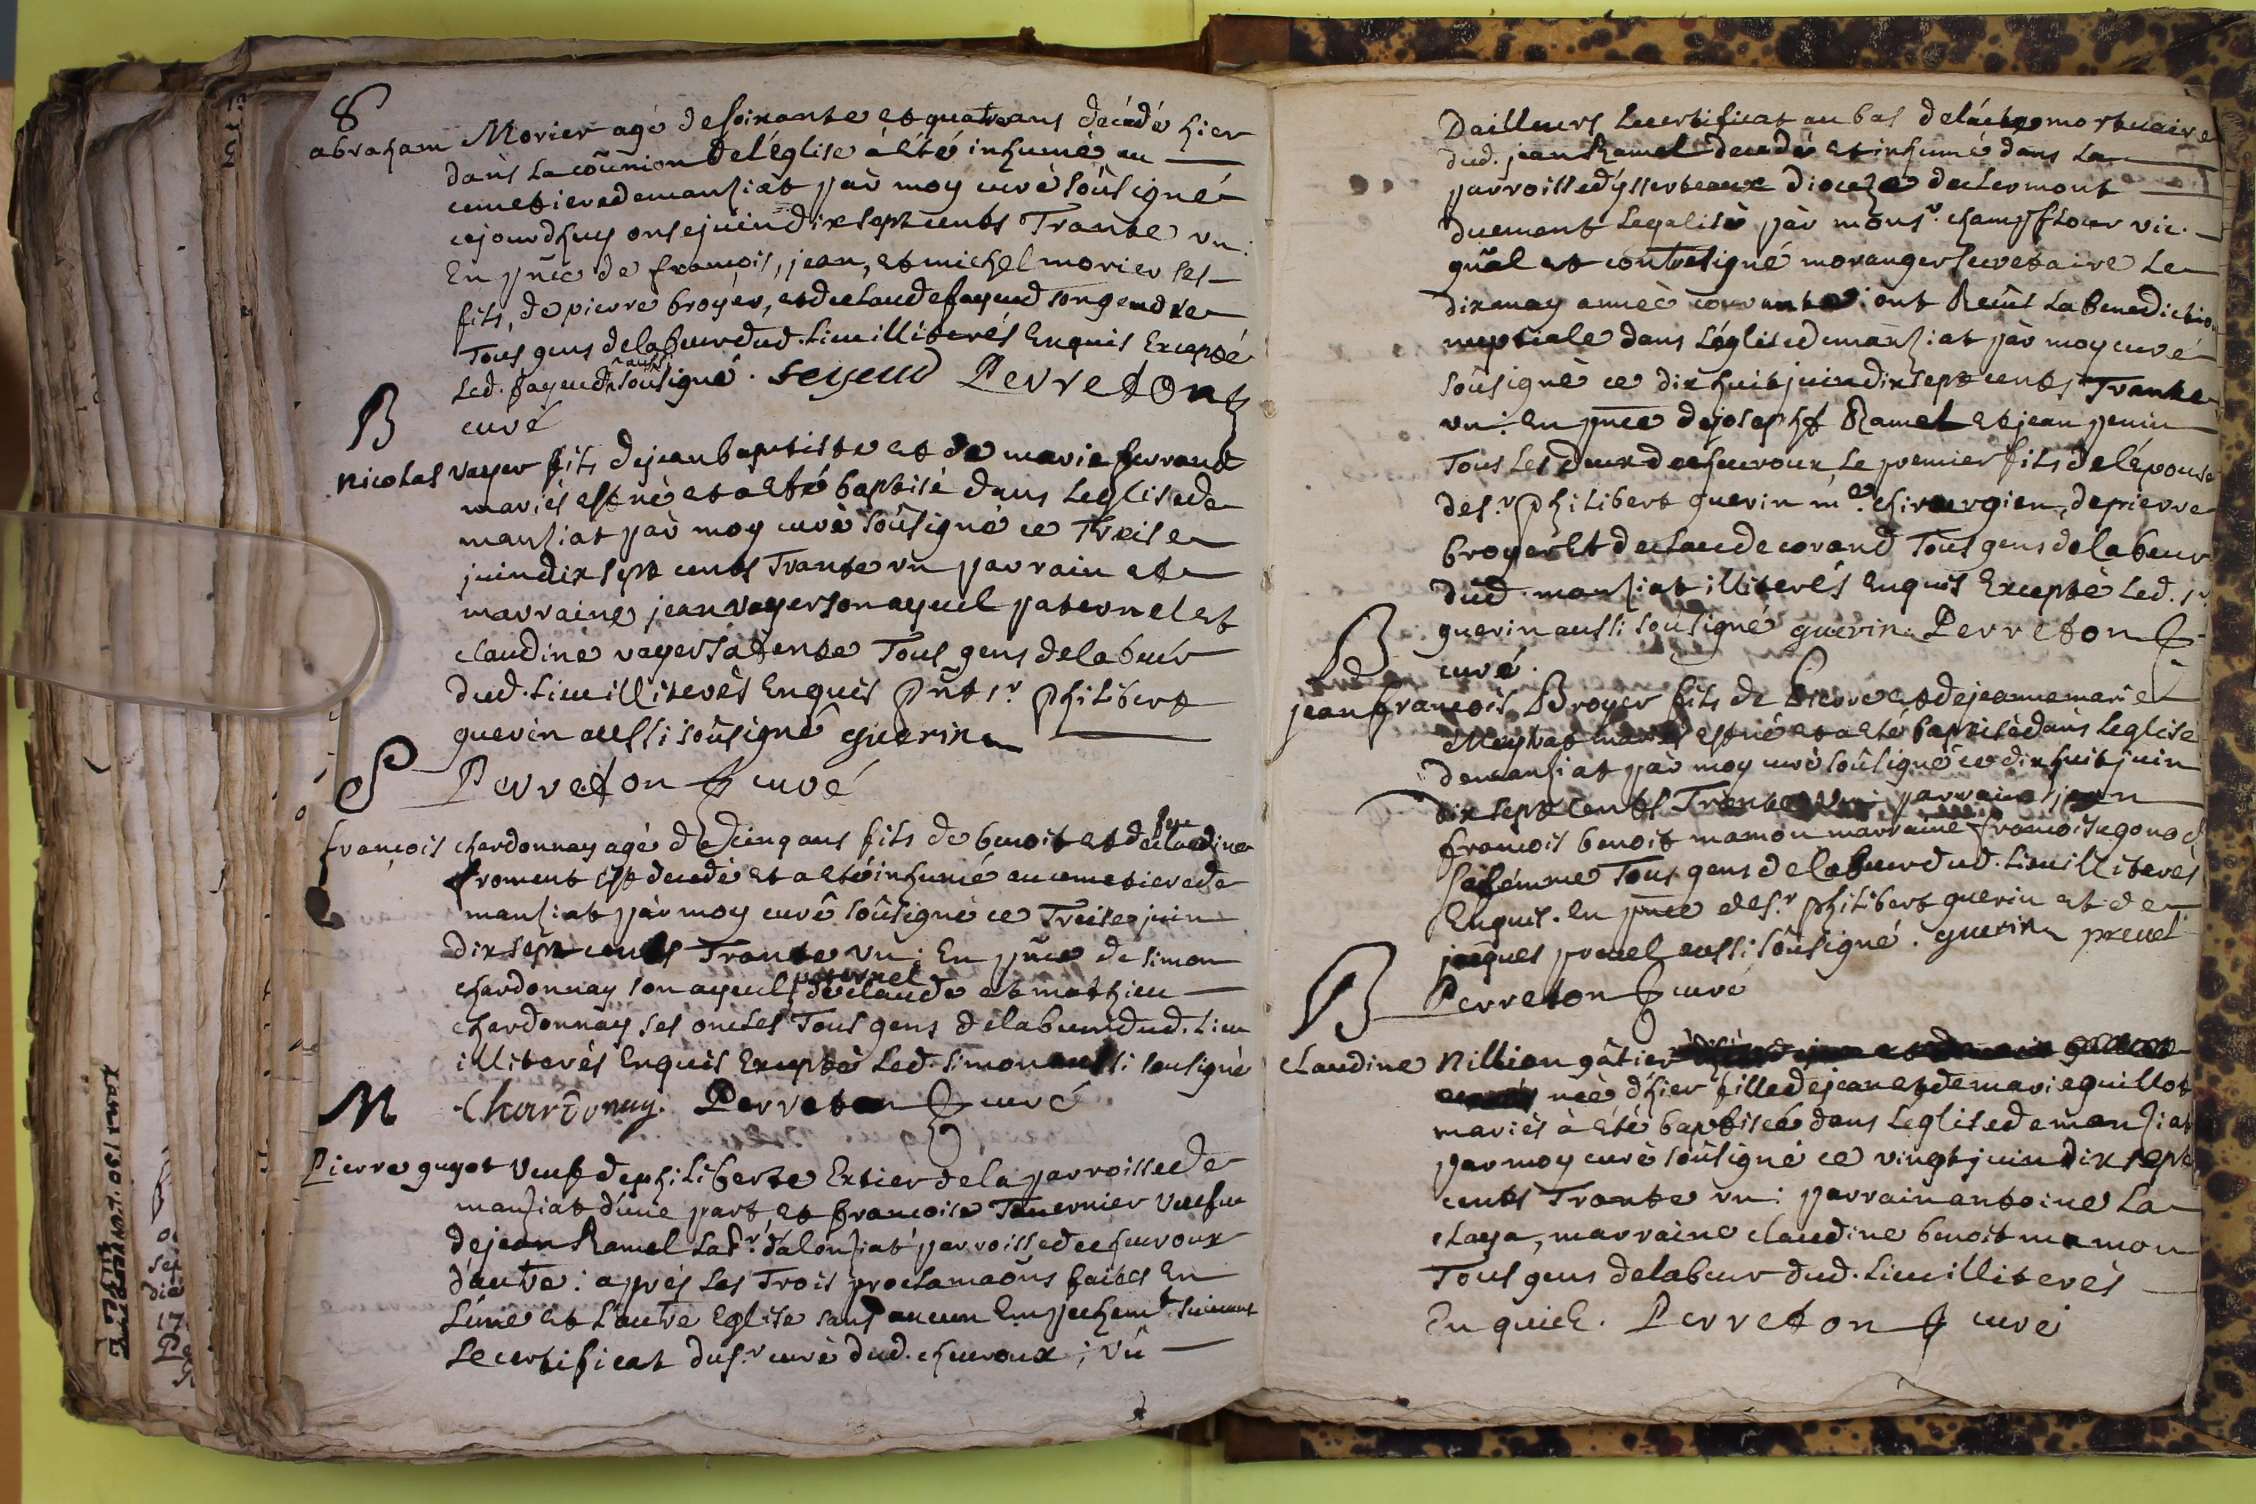 S
abraham Morier agé de soixante et quatre ans décédé hier
dans la coũnion de l'église à été inhumé au
cimetiere de manziat par moy curé soûsigné
cejourdhuy onse juin dix sept cents Trante un:
En pñce de françois, jean, et michel morier ses
fils, de pierre broyer, et de claude fayend son gendre
Tous gens de labeur dud. Lieu illiterés Enquis Excepté
led. fayend aussi soûsigné. feyeud Perreton
curé
B
nicolas vayer fils de jean baptiste et de marie ferrand
mariés est né et a été baptisé dans Leglise de
manziat par moy curé soûsigné ce Treise
juin dix sept cents Trante un parrain et
marraine jean vayer son ayeul paternel et
claudine vayer sa tente Tous gens de labeur
dud. Lieu illiterés Enquis pñt sr philibert
guerin aussi soûsigné guerin
Perreton curé
S
françois chardonnay agé de cinq ans fils de benoit et de feue claudine
froment est decedé et a été inhumé au cimetiere de
manziat par moy curé soûsigné ce Treise juin
dix sept cents Trante un: En pñce de simon
chardonnay son ayeul paternel de claude et mathieu
chardonnay ses oncles Tous gens de labeur dud. Lieu
illiterés Enquis Excepté Led. simon aussi sousigné
Chardonnay. Perreton curé
M
Pierre guyot veuf de philiberte Extier de la parroisse de
manziat d'une part et francoise Tavernier veufue
de jean Ramel La sr d'alonziat parroisse de cheuroux
d'autre: aprés Les Trois proclamaõns faites En
L'une et L'autre Eglise sans aucun Empechemt suivant
Le certificat du sr curé dud. cheuroux; vû
D'ailleurs Le certificat au bas de l'acte mortuaire
dud. jean Ramel decedé et inhumé dans La
parroisse d'ysserteaux dioceze de clermont
duement Legalisé par monsr. champflour vic.
gñal et contresigné moranger secretaire Le
dix may année courrante: ont Reçus La Benediction
nuptiale dans L'église de manziat par moy curé
soûsigné ce dix huit juin dix sept cents Trante
un: En pñce de joseph Ramel et jean penin
Tous Les deux de cheuroux Le premier fils de L'épouse
de sr. philibert guerin me. chirurgien, de pierre
broyer Et de claude corand Tous gens de labeur
dud. manziat illiterés Enquis Excepté Led. sr.
guerin aussi soûsigné guerin. Perreton
curé.
B
jean françois Broyer fils de Pierre et de jeanne marie
mariés est né et a été baptisé dans Leglise
de manziat par moy curé soûsigné ce dix huit juin
dix sept cents Trante un: parrain jean
francois benoit mamon marraine francoise gonod
sa femme Tous gens de labeur dud. Lieu illiterés
Enquis. En pñce de sr. philibert guerin et de
jacques preuel aussi soûsigné. guerin preuel
Perreton curé
B
claudine Nillion gâtier
née d'hier fille de jean et de marie guillot
mariés à été baptisée dans Leglise de manziat
par moy curé soûsigné ce vingt juin dix sept
cents Trante un: parrain antoine La
chaya, marraine claudine benoit mamon
Tous gens de labeur dud. Lieu illiterés
Enquis. Perreton curé